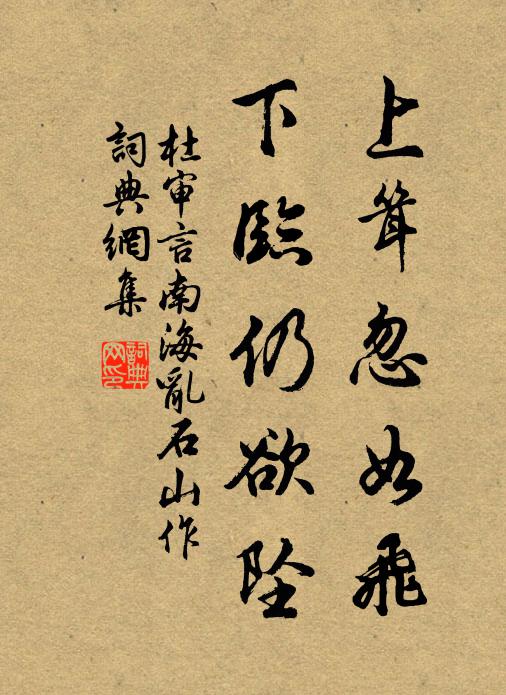 上聳忽如飛
下臨仍欲墜
杜审言南海亂石山作
詞典網集
詞典网印